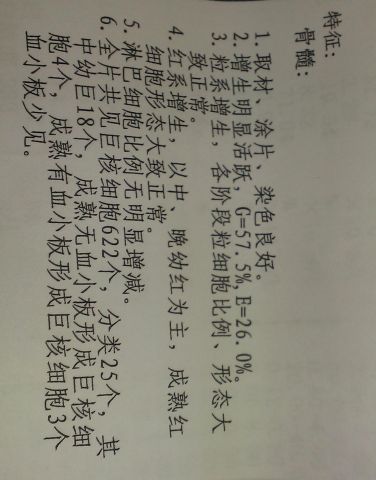 特征：
骨髓：
1. 取材、涂片、染色良好。
2. 增生明显活跃，G=57.5%，E=26.0%。
3. 粒系增生，各阶段粒细胞比例、形态大
致正常。
4. 红系增生，以中、晚幼红为主，成熟红
细胞形态大致正常。
5. 淋巴细胞比例无明显增减。
6. 全片共见巨核细胞622个，分类25个，其
中幼巨18个，成熟无血小板形成巨核细
胞4个，成熟有血小板形成巨核细胞3个
血小板少见。